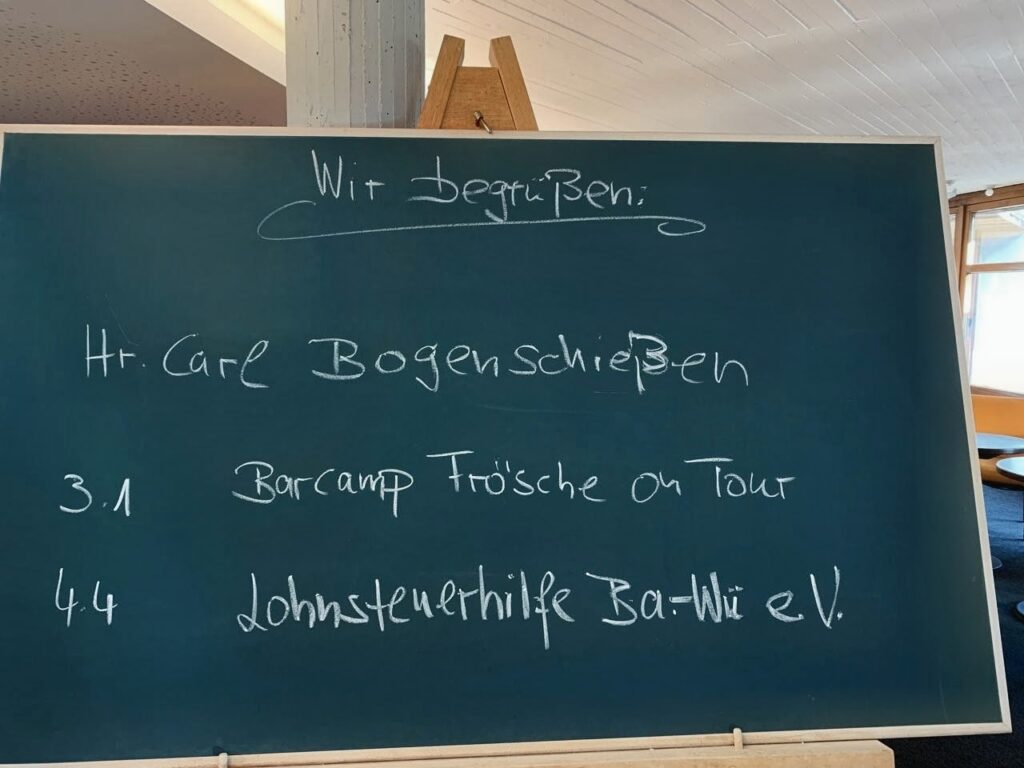 Wir begrüßen:
Hr. Carl Bogenschießen
3.1 Barcamp Frösche on Tour
4.4 Lohnsteuerhilfe Ba-Wü e.V.